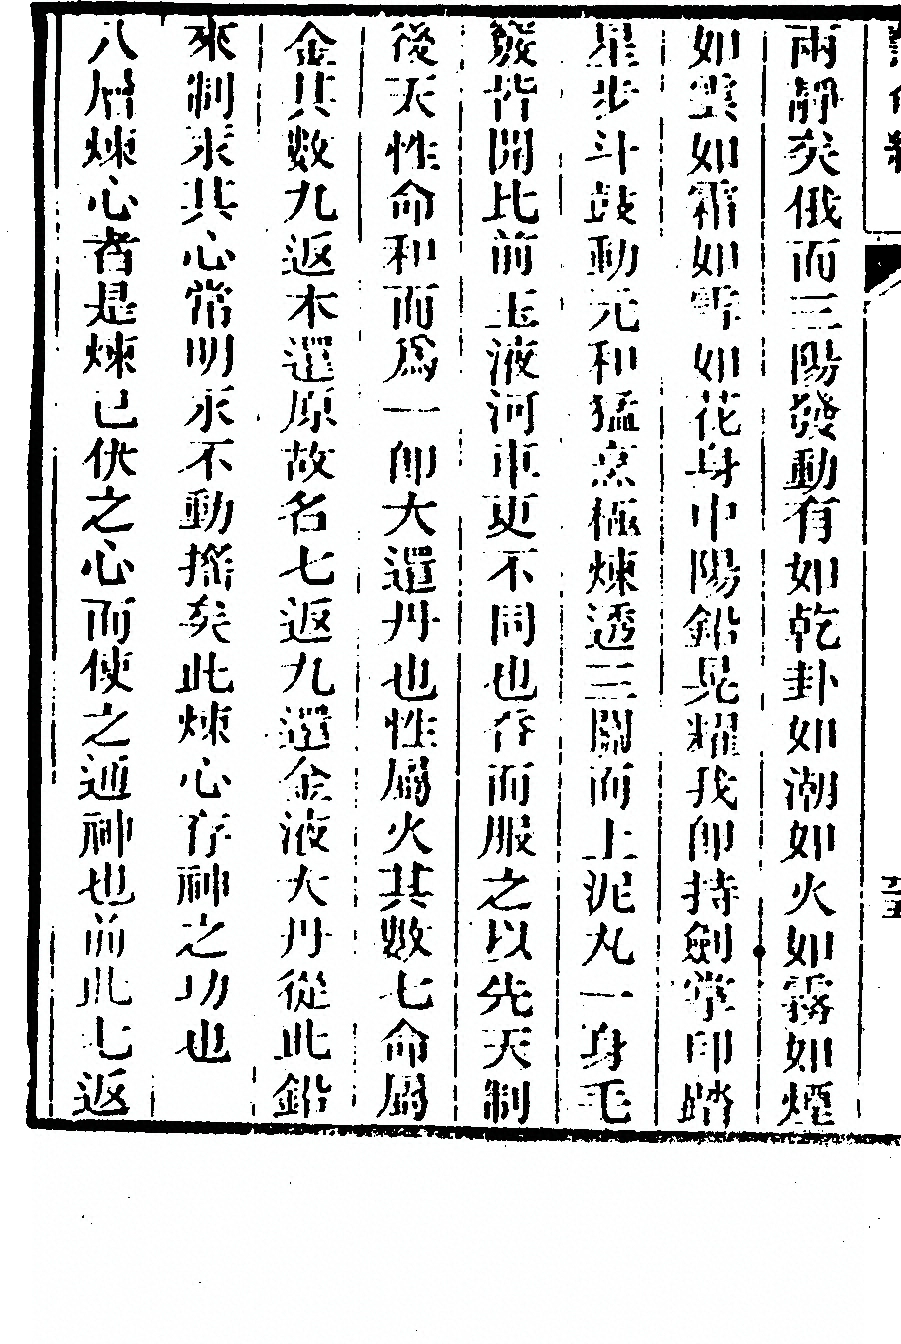 兩靜矣俄而三陽發動有如乾卦如潮如火如霧如煙
如雲如霜如雪如花身中陽鉛晃耀我卽持劍掌印踏
星步斗鼓動元和猛烹極煉透三關而上泥丸一身毛
竅皆開比前玉液河車更不同也吞而服之以先天制
後天性命和而爲一卽大還丹也性屬火其數七命屬
金其數九返本還原故名七返九還金液大丹從此鉛
來制汞其心常明汞不動搖矣此煉心存神之功也
八層煉心者是煉已伏之心而使之通神也前此七返